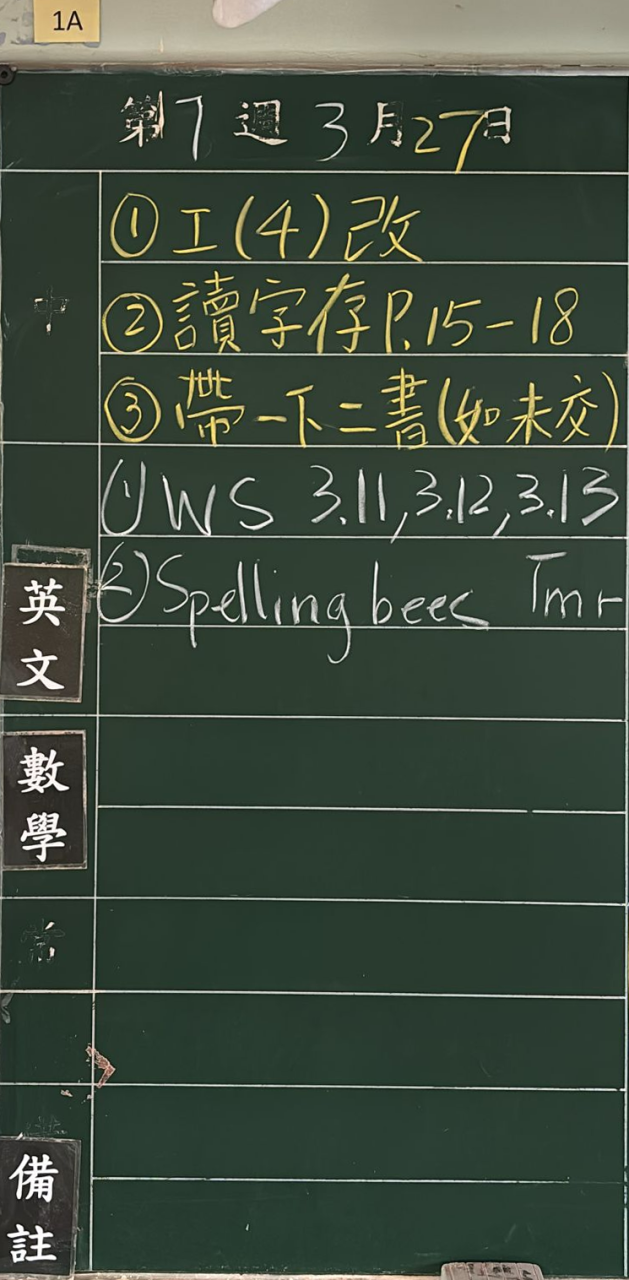 1A
第7週3月27日
中
①工(4)改
②讀字存P.15-18
③帶一下二書(如未交)
(1)WS 3.11,3.12,3.13
英文
(2)Spelling bees Tmr
數學
常
備註